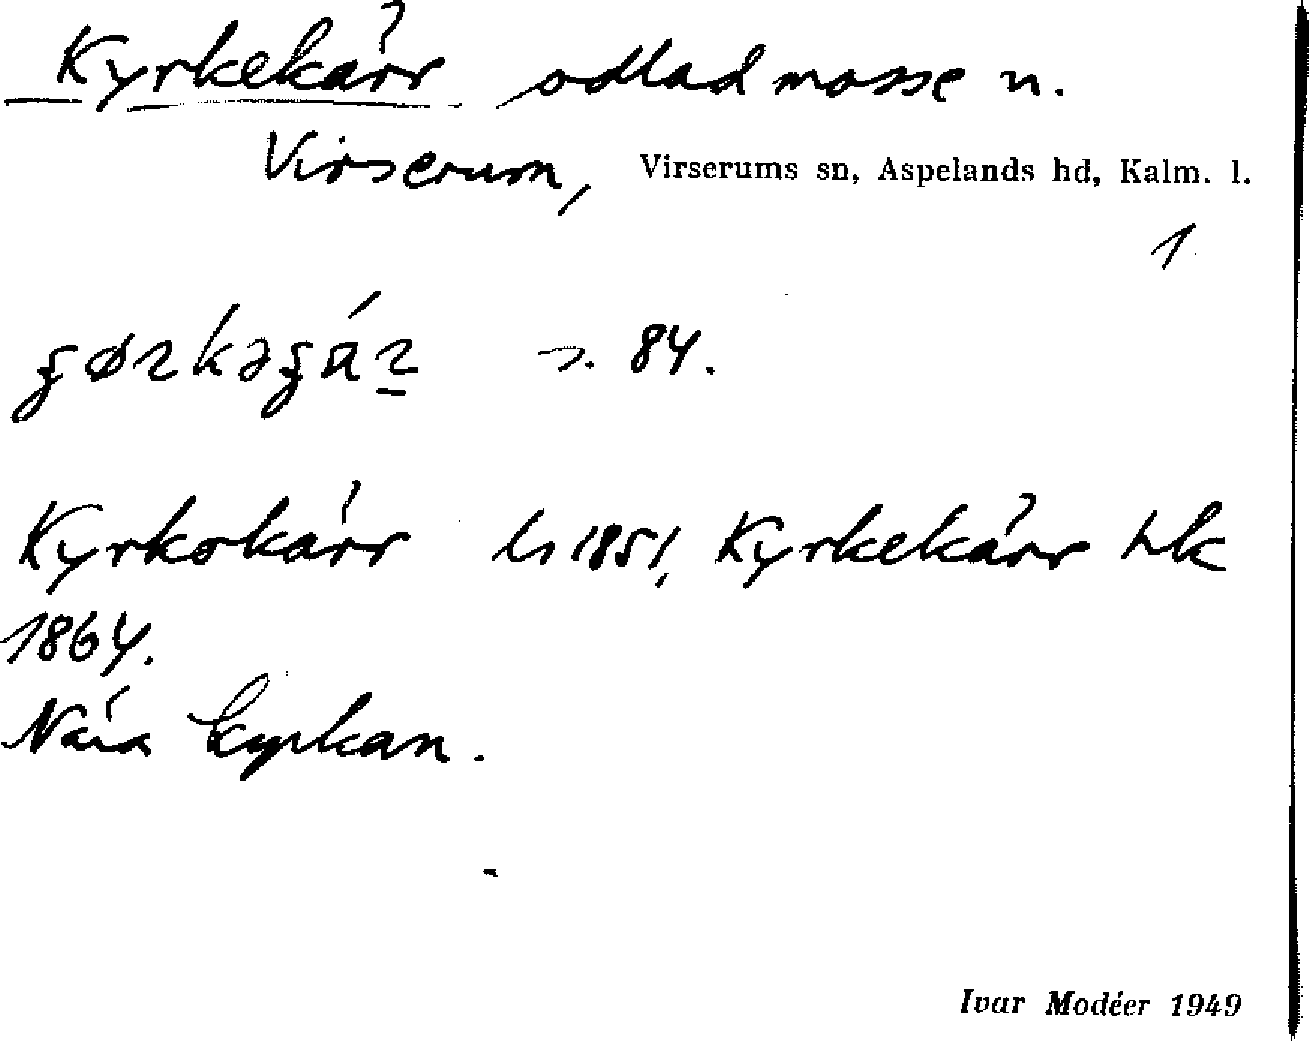 Kyrkekärr odlad mosse n.
Virserum, Virserums sn, Aspelands hd, Kalm. l.
1
s. 84.
Kyrkokärr ls 1851, Kyrkekärr hk
1864.
Nära kyrkan.
Ivar Modéer 1949